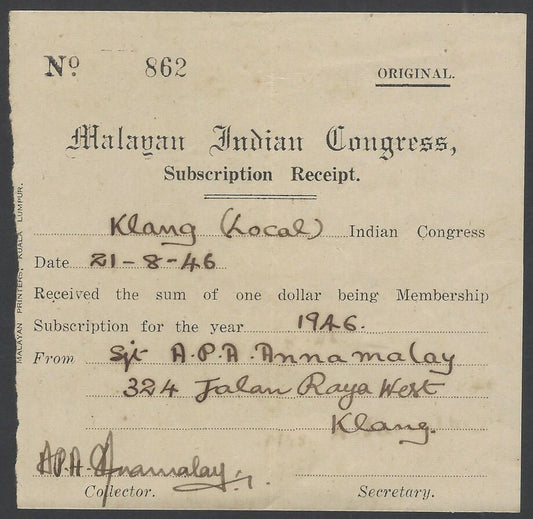 Nº 862
ORIGINAL.
Malayan Indian Congress,
Subscription Receipt.
Klang (Local) Indian Congress
Date 21-8-46
Received the sum of one dollar being Membership
Subscription for the year 1946.
From Sjt A.P.A. Annamalay
324 Jalan Raya West
Klang.
A.P.A. Annamalay
Collector. Secretary.
MALAYAN PRINTERS, KUALA LUMPUR.